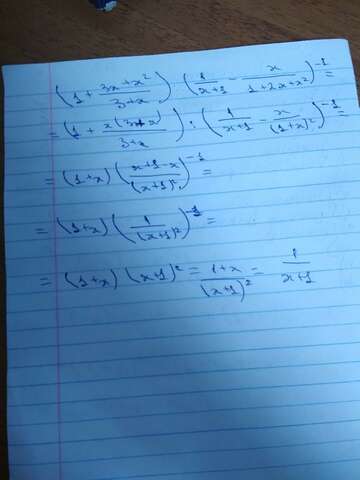 (1 + \frac{3x+x^2}{3+x}) (\frac{1}{x+1} - \frac{x}{1+2x+x^2})^{-1} =
= (1 + \frac{x(3+x)}{3+x}) \cdot (\frac{1}{x+1} - \frac{x}{(1+x)^2})^{-1} =
= (1+x) (\frac{x+1-x}{(x+1)^2})^{-1} =
= (1+x) (\frac{1}{(x+1)^2})^{-1} =
= (1+x) (x+1)^2 = \frac{1+x}{(x+1)^2} = \frac{1}{x+1}